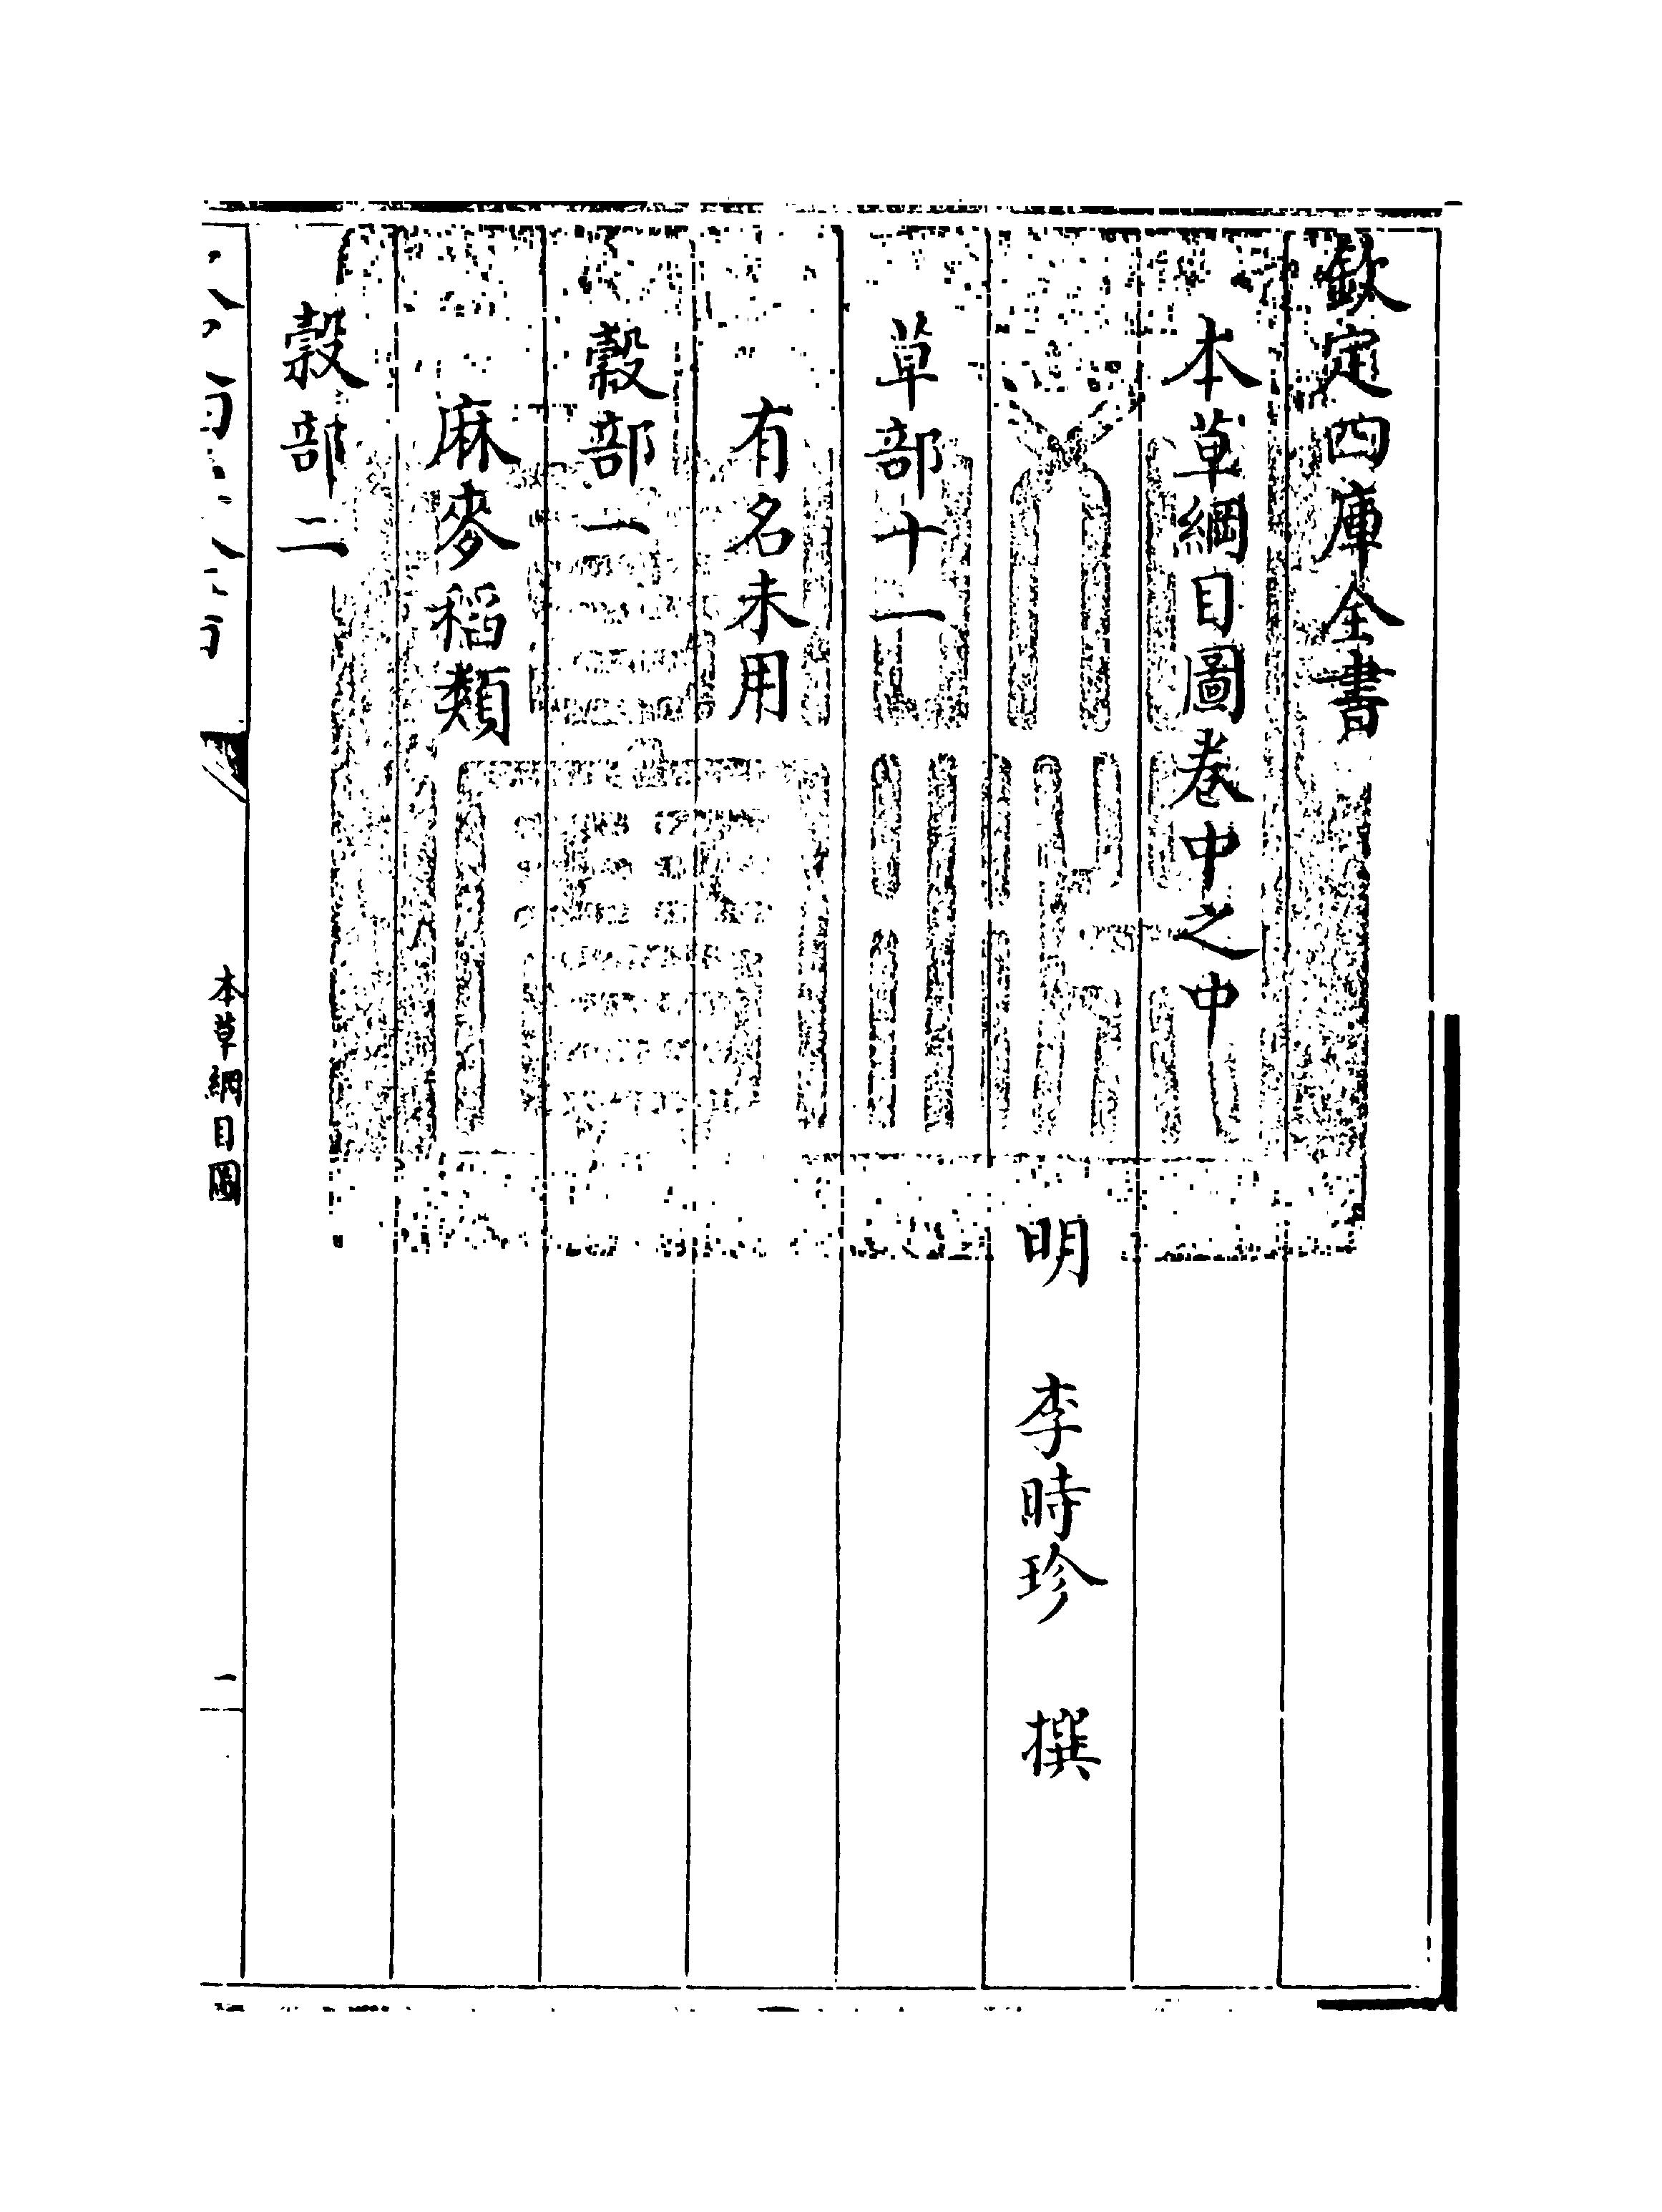 欽定四庫全書
本草綱目圖卷中之中
明 李時珍 撰
草部十一
有名未用
穀部一
麻麥稻類
穀部二
本草綱目圖
一